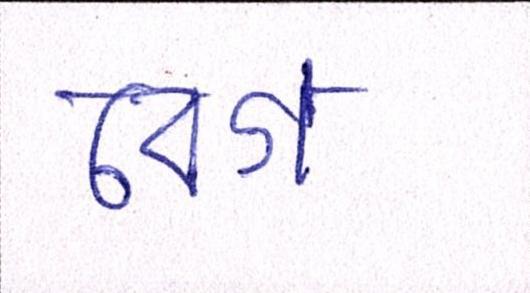 বেগ